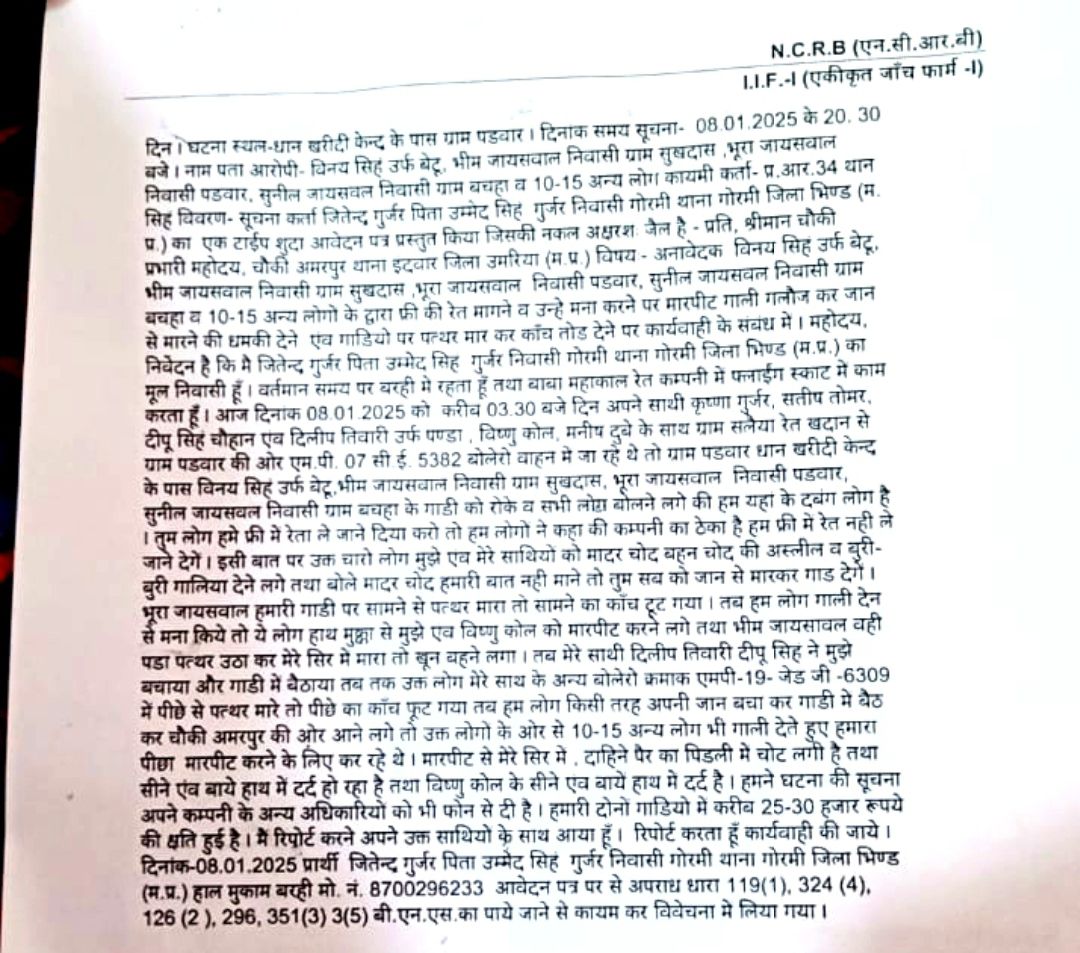 N.C.R.B (एन.सी.आर.बी)
I.I.F.-I (एकीकृत जाँच फार्म -I)
दिन । घटना स्थल-धान खरीदी केन्द के पास ग्राम पडवार । दिनांक समय सूचना- 08.01.2025 के 20. 30
बजे । नाम पता आरोपी- विनय सिहं उर्फ बेटू, भीम जायसवाल निवासी ग्राम सुखदास ,भूरा जायसवाल
निवासी पडवार, सुनील जायसवल निवासी ग्राम बचहा व 10-15 अन्य लोग कायमी कर्ता- प्र.आर.34 थान
सिहं विवरण- सूचना कर्ता जितेन्द्र गुर्जर पिता उम्मेद सिहं गुर्जर निवासी गोरमी थाना गोरमी जिला भिण्ड (म.
प्र.) का एक टाईप शुदा आवेदन पत्र प्रस्तुत किया जिसकी नकल अक्षरशः जैल है - प्रति, श्रीमान चौकी
प्रभारी महोदय, चौकी अमरपुर थाना इदवार जिला उमरिया (म.प्र.) विषय - अनावेदक विनय सिहं उर्फ बेटू,
भीम जायसवाल निवासी ग्राम सुखदास ,भूरा जायसवाल निवासी पडवार, सुनील जायसवल निवासी ग्राम
बचहा व 10-15 अन्य लोगों के द्वारा फ्री की रेत मागने व उन्हे मना करने पर मारपीट गाली गलौज कर जान
से मारने की धमकी देने एंव गाडियो पर पत्थर मार कर काँच तोड देने पर कार्यवाही के संबंध में । महोदय,
निवेदन है कि मै जितेन्द्र गुर्जर पिता उम्मेद सिहं गुर्जर निवासी गोरमी थाना गोरमी जिला भिण्ड (म.प्र.) का
मूल निवासी हूँ । वर्तमान समय पर बरही मे रहता हूँ तथा बाबा महाकाल रेत कम्पनी में फ्लाईंग स्काट में काम
करता हूँ । आज दिनांक 08.01.2025 को करीब 03.30 बजे दिन अपने साथी कृष्णा गुर्जर, सतीष तोमर,
दीपू सिहं चौहान एंव दिलीप तिवारी उर्फ पण्डा , विष्णु कोल, मनीष दुबे के साथ ग्राम सलैया रेत खदान से
ग्राम पडवार की ओर एम.पी. 07 सी ई. 5382 बोलेरो वाहन मे जा रहे थे तो ग्राम पडवार धान खरीदी केन्द
के पास विनय सिहं उर्फ बेटू,भीम जायसवाल निवासी ग्राम सुखदास, भूरा जायसवाल निवासी पडवार,
सुनील जायसवल निवासी ग्राम बचहा के गाडी को रोके व सभी लोग बोलने लगे की हम यहां के दबंग लोग है
। तुम लोग हमे फ्री में रेता ले जाने दिया करो तो हम लोगों ने कहा की कम्पनी का ठेका है हम फ्री में रेत नही ले
जाने देगें । इसी बात पर उक्त चारो लोग मुझे एंव मेरे साथियो को मादर चोद बहन चोद की अस्लील व बुरी-
बुरी गालिया देने लगे तथा बोले मादर चोद हमारी बात नही माने तो तुम सब को जान से मारकर गाड देगें ।
भूरा जायसवाल हमारी गाडी पर सामने से पत्थर मारा तो सामने का काँच टूट गया । तब हम लोग गाली देन
से मना किये तो ये लोग हाथ मुक्का से मुझे एंव विष्णु कोल को मारपीट करने लगे तथा भीम जायसावल वही
पडा पत्थर उठा कर मेरे सिर मे मारा तो खून बहने लगा । तब मेरे साथी दिलीप तिवारी दीपू सिहं ने मुझे
बचाया और गाडी में बैठाया तब तक उक्त लोग मेरे साथ के अन्य बोलेरो क्रमाक एमपी-19- जेड जी -6309
में पीछे से पत्थर मारे तो पीछे का काँच फूट गया तब हम लोग किसी तरह अपनी जान बचा कर गाडी मे बैठ
कर चौकी अमरपुर की ओर आने लगे तो उक्त लोगों के ओर से 10-15 अन्य लोग भी गाली देते हुए हमारा
पीछा मारपीट करने के लिए कर रहे थे । मारपीट से मेरे सिर में , दाहिने पैर का पिडली में चोट लगी है तथा
सीने एंव बाये हाथ में दर्द हो रहा है तथा विष्णु कोल के सीने एंव बायें हाथ मे दर्द है । हमने घटना की सूचना
अपने कम्पनी के अन्य अधिकारियों को भी फोन से दी है । हमारी दोनो गाडियो में करीब 25-30 हजार रूपये
की क्षति हुई है । मै रिपोर्ट करने अपने उक्त साथियो के साथ आया हूँ । रिपोर्ट करता हूँ कार्यवाही की जाये ।
दिनांक-08.01.2025 प्रार्थी जितेन्द्र गुर्जर पिता उम्मेद सिहं गुर्जर निवासी गोरमी थाना गोरमी जिला भिण्ड
(म.प्र.) हाल मुकाम बरही मो. नं. 8700296233 आवेदन पत्र पर से अपराध धारा 119(1), 324 (4),
126 (2 ), 296, 351(3) 3(5) बी.एन.एस.का पाये जाने से कायम कर विवेचना मे लिया गया ।